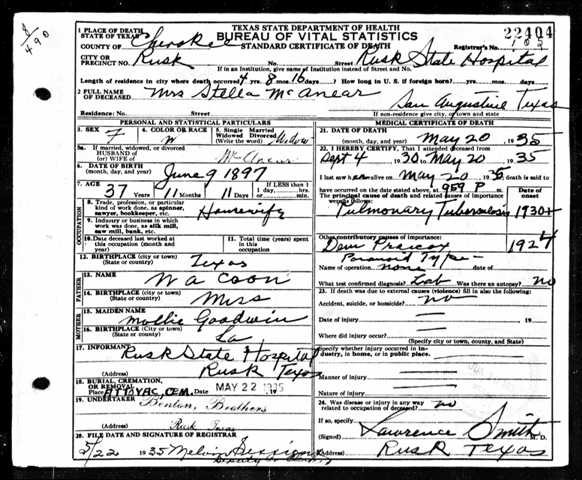 TEXAS STATE DEPARTMENT OF HEALTH
BUREAU OF VITAL STATISTICS
STANDARD CERTIFICATE OF DEATH
22404
1 PLACE OF DEATH
STATE OF TEXAS
COUNTY OF Cherokee
Registrar's No. 105
CITY OR PRECINCT NO. Rusk No. Street Rusk State Hospital
If in an Institution, give name of Institution instead of Street and No.
Length of residence in city where death occurred 4 yrs. 8 mos. 16 days. How long in U. S. if foreign born? yrs. mos. days
2 FULL NAME OF DECEASED Mrs Stella McAnear
San Augustine Texas
Residence: No. Street
If non-residence give city, town and state
PERSONAL AND STATISTICAL PARTICULARS
3. SEX F
4. COLOR OR RACE
5. Single Married Widowed Divorced (Write the word) Widow
5a. If married, widowed, or divorced HUSBAND OF (or) WIFE OF McAnear
6. DATE OF BIRTH (month, day, and year) June 9 1897
7. AGE 37 Years 11 Months 11 Days If LESS than 1 day, hrs. or min.
OCCUPATION
8. Trade, profession, or particular kind of work done, as spinner, sawyer, bookkeeper, etc. Housewife
9. Industry or business in which work was done, as silk mill, saw mill, bank, etc.
10. Date deceased last worked at this occupation (month and year)
11. Total time (years) spent in this occupation
12. BIRTHPLACE (City or town) (State or country) Texas
FATHER
13. NAME W A Coon
14. BIRTHPLACE (City or town) (State or country) Miss
MOTHER
15. MAIDEN NAME Mollie Goodwin
16. BIRTHPLACE (City or town) (State or country) La
17. INFORMANT Rusk State Hospital
(Address) Rusk Texas
18. BURIAL, CREMATION, OR REMOVAL
Place ATTOYAC, CEM. Date MAY 22 1935
19. UNDERTAKER Brothers
(Address) Rusk Texas
20. FILE DATE AND SIGNATURE OF REGISTRAR
5/22 1935 Melvin
MEDICAL CERTIFICATE OF DEATH
21. DATE OF DEATH (month, day, and year) May 20 1935
22. I HEREBY CERTIFY, That I attended deceased from
Sept 4 1930 May 20 1935
I last saw her alive on May 20 1935 death is said to
have occurred on the date stated above, at 959 P. m.
The principal cause of death and related causes of importance were as follows: Date of onset
Pulmonary Tuberculosis 1930+
Other contributory causes of importance:
Dem Praecox 1924
Paranoid Type
Name of operation none date of
What test confirmed diagnosis? Lab Was there an autopsy? no
23. If death was due to external causes (violence) fill in also the following:
Accident, suicide, or homicide? no
Date of injury 19
Where did injury occur?
(Specify city or town, county, and State)
Specify whether injury occurred in industry, in home, or in public place
Manner of injury
Nature of injury
24. Was disease or injury in any way related to occupation of deceased? no
If so, specify
(Signed) Lawrence Smith M. D.
Rusk Texas